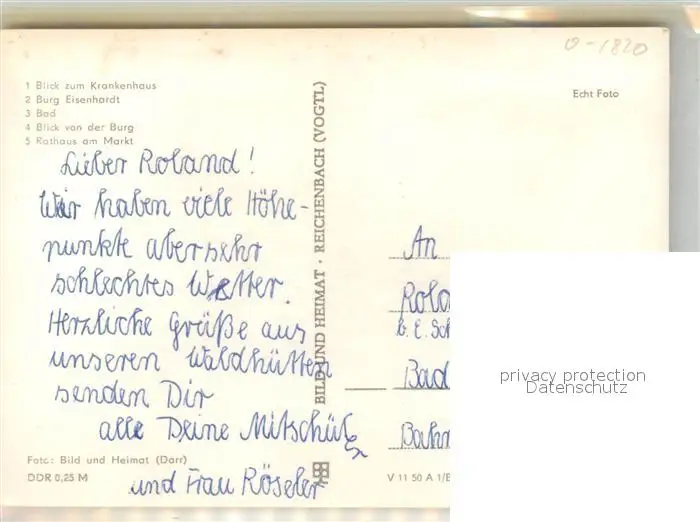 0-1820
1 Blick zum Krankenhaus
2 Burg Eisenhardt
3 Bad
4 Blick von der Burg
5 Rathaus am Markt
Echt Foto
Lieber Roland!
Wir haben viele Höhe-
punkte aber sehr
schlechtes Wetter.
Herzliche Grüße aus
unseren Waldhütten
senden Dir
alle Deine Mitschül
und Frau Röseler
BILD UND HEIMAT · REICHENBACH (VOGTL)
An
Rolo
b. E. Sch
Bad
Bahn
privacy protection
Datenschutz
Foto: Bild und Heimat (Darr)
DDR 0,25 M
V 11 50 A 1/